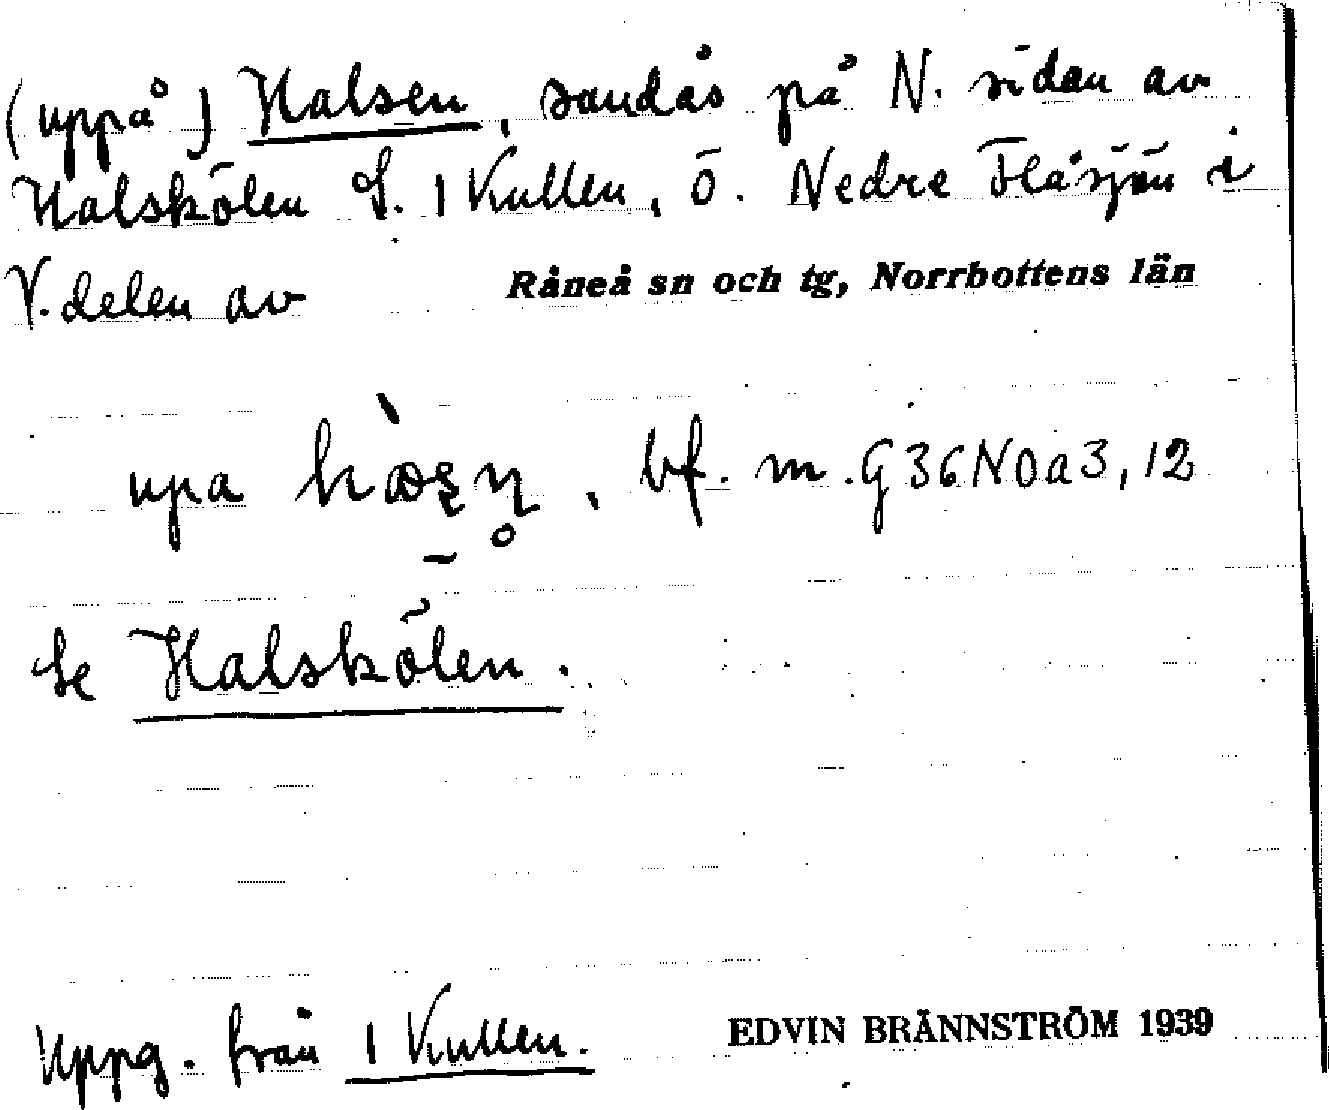 (uppå) Halsen, sandås på N. sidan av
Halskölen S. 1 Kullen, ö. Nedre Flåsjön i
V. delen av Råneå sn och tg, Norrbottens län
upa , bf. m. G36N0a3,12
se Halskölen.
Uppg. från 1 Kullen. EDVIN BRÄNNSTRÖM 1939